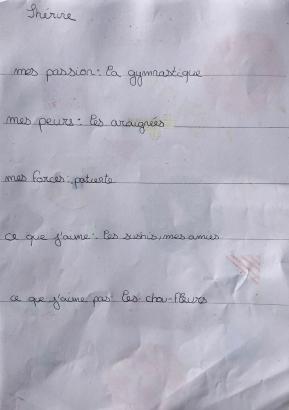 mes passion: la gymnastique
mes peurs: les araignées
mes forces: patiente
ce que j'aime: les sushis, mes amies
ce que j'aime pas: les chou-fleurs